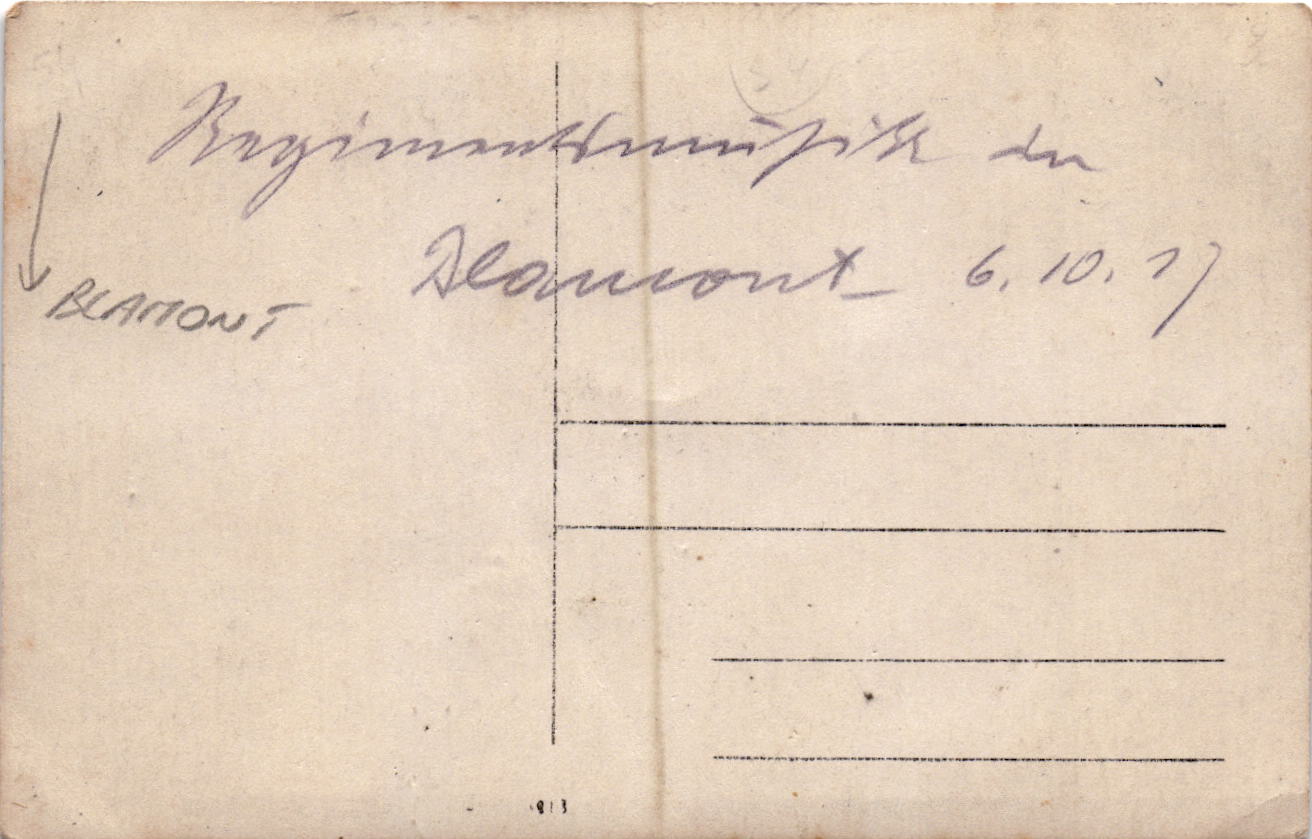 Regimentsmusik in
Blamont 6.10.17
BLAMONT
54
813